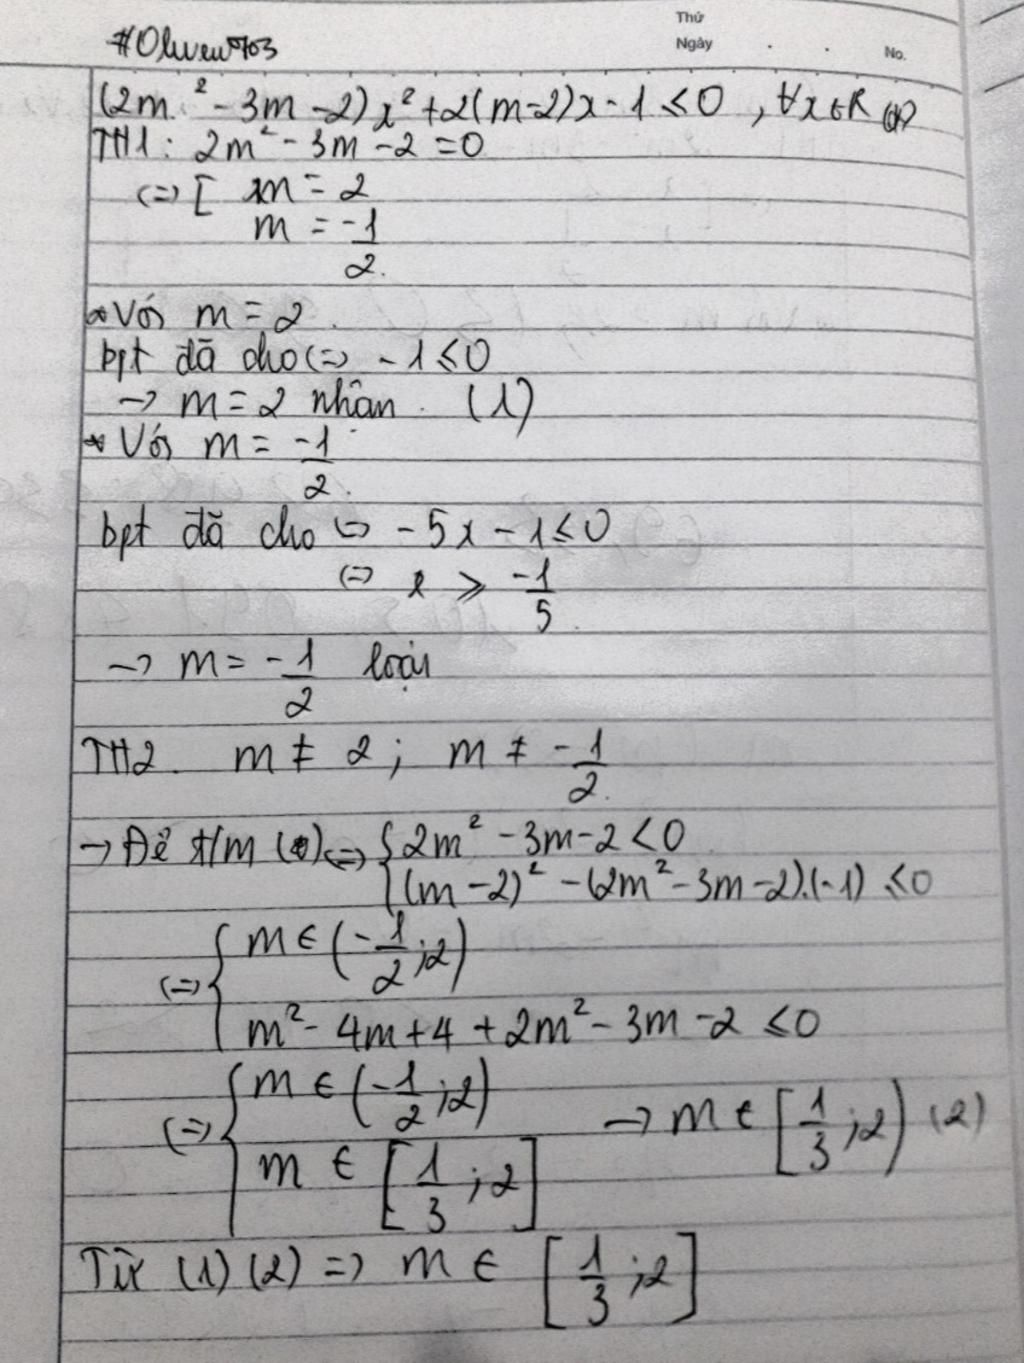 Thứ
#Oliveu0703
Ngày . .
No.
(2m² - 3m - 2)x² + 2(m-2)x - 1 ≤ 0 , ∀x∈R (*)
TH1: 2m² - 3m - 2 = 0
(=) [ m = 2
m = -1/2.
* Với m = 2.
bpt đã cho (=) -1 ≤ 0
→ m = 2 nhận. (1)
* Với m = -1/2.
bpt đã cho (=) -5x - 1 ≤ 0
(=) x ≥ -1/5.
→ m = -1/2 loại
TH2. m ≠ 2 ; m ≠ -1/2.
→ Để t/m (*) (=) { 2m² - 3m - 2 < 0
(m-2)² - (2m² - 3m - 2).(-1) ≤ 0
(=) { m ∈ (-1/2 ; 2)
m² - 4m + 4 + 2m² - 3m - 2 ≤ 0
(=) { m ∈ (-1/2 ; 2)
m ∈ [1/3 ; 2] → m ∈ [1/3 ; 2) (2)
Từ (1) (2) => m ∈ [1/3 ; 2]